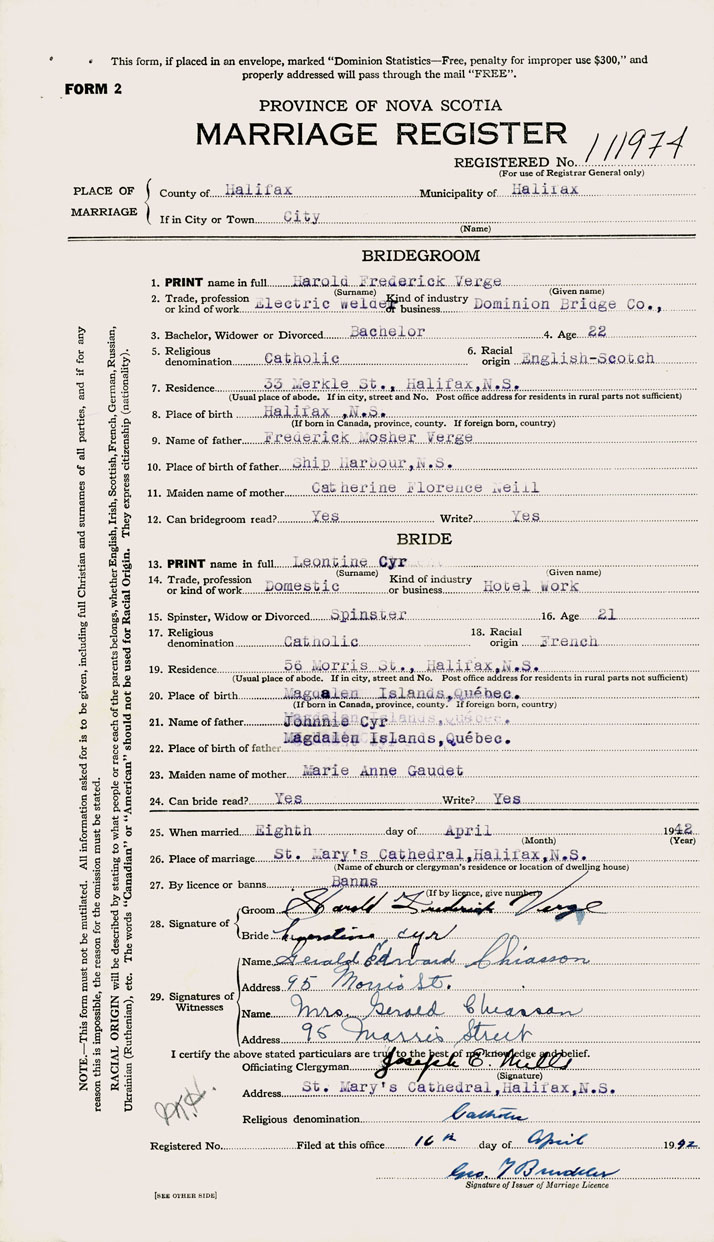 This form, if placed in an envelope, marked "Dominion Statistics—Free, penalty for improper use $300," and
properly addressed will pass through the mail "FREE".
FORM 2
PROVINCE OF NOVA SCOTIA
MARRIAGE REGISTER
REGISTERED No. 111974
(For use of Registrar General only)
PLACE OF MARRIAGE
County of Halifax Municipality of Halifax
If in City or Town City
(Name)
BRIDEGROOM
1. PRINT name in full Harold Frederick Verge
(Surname) (Given name)
2. Trade, profession or kind of work Electric Welder Kind of industry or business Dominion Bridge Co.,
3. Bachelor, Widower or Divorced Bachelor 4. Age 22
5. Religious denomination Catholic 6. Racial origin English-Scotch
7. Residence 33 Merkle St., Halifax,N.S.
(Usual place of abode. If in city, street and No. Post office address for residents in rural parts not sufficient)
8. Place of birth Halifax ,N.S.
(If born in Canada, province, county. If foreign born, country)
9. Name of father Frederick Mosher Verge
10. Place of birth of father Ship Harbour,N.S.
11. Maiden name of mother Catherine Florence Neill
12. Can bridegroom read? Yes Write? Yes
BRIDE
13. PRINT name in full Leontine Cyr
(Surname) (Given name)
14. Trade, profession or kind of work Domestic Kind of industry or business Hotel Work
15. Spinster, Widow or Divorced Spinster 16. Age 21
17. Religious denomination Catholic 18. Racial origin French
19. Residence 56 Morris St., Halifax,N.S.
(Usual place of abode. If in city, street and No. Post office address for residents in rural parts not sufficient)
20. Place of birth Magdalen Islands,Québec.
(If born in Canada, province, county. If foreign born, country)
21. Name of father Johnnie Cyr
22. Place of birth of father Magdalen Islands,Québec.
23. Maiden name of mother Marie Anne Gaudet
24. Can bride read? Yes Write? Yes
25. When married Eighth day of April 1942
(Month) (Year)
26. Place of marriage St. Mary's Cathedral,Halifax,N.S.
(Name of church or clergyman's residence or location of dwelling house)
27. By licence or banns Banns
(If by licence, give number)
28. Signature of
Groom Harold Frederick Verge
Bride cyr
29. Signatures of Witnesses
Name Gerald Edward Chiasson
Address 95 Morris St.
Name Mrs. Gerald Chiasson
Address 95 Morris Street
I certify the above stated particulars are true to the best of my knowledge and belief.
Officiating Clergyman Joseph E. Mills
(Signature)
Address St. Mary's Cathedral,Halifax,N.S.
Religious denomination Catholic
Registered No. Filed at this office 16th day of April 1942
Geo.
Signature of Issuer of Marriage Licence
[SEE OTHER SIDE]
NOTE.—This form must not be mutilated. All information asked for is to be given, including full Christian and surnames of all parties, and if for any
reason this is impossible, the reason for the omission must be stated.
RACIAL ORIGIN will be described by stating to what people or race each of the parents belongs, whether English, Irish, Scottish, French, German, Russian,
Ukrainian (Ruthenian), etc. The words "Canadian" or "American" should not be used for Racial Origin. They express citizenship (nationality).